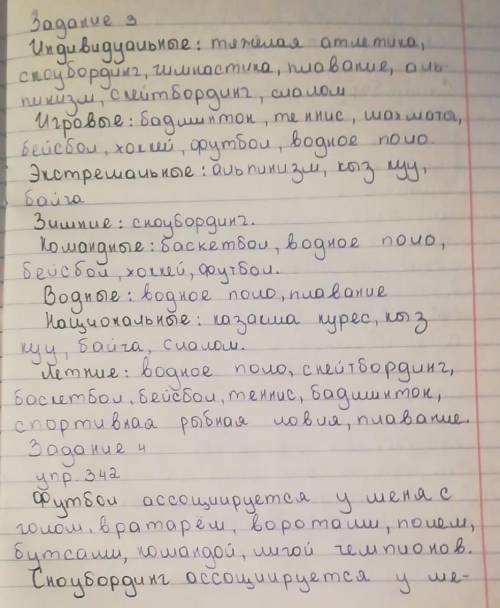 Задание 3
Индивидуальные: тяжёлая атлетика,
сноубординг, гимнастика, плавание, аль-
пинизм, скейтбординг, слалом
Игровые: бадминтон, теннис, шахматы,
бейсбол, хоккей, футбол, водное поло.
Экстремальные: альпинизм, кыз куу,
байга
Зимние: сноубординг.
Командные: баскетбол, водное поло,
бейсбол, хоккей, футбол.
Водные: водное поло, плавание
Национальные: казакша курес, кыз
куу, байга, слалом.
Летние: водное поло, скейтбординг,
баскетбол, бейсбол, теннис, бадминтон,
спортивная рыбная ловля, плавание.
Задание 4
упр. 342
Футбол ассоциируется у меня с
голом, вратарём, воротами, полем,
бутсами, командой, лигой чемпионов.
Сноубординг ассоциируется у ме-